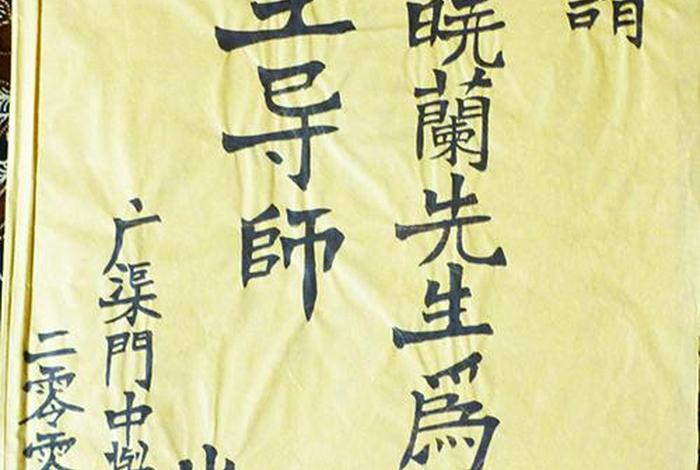 請
晓蘭先生爲
导師
广渠門中
二零零